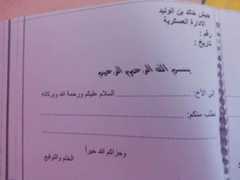 جيش خالد بن الوليد
الادارة العسكرية
رقم :
تاريخ :
بسم الله الرحمن الرحيم
الى الأخ: ............ السلام عليكم ورحمة الله وبركاته
نطلب منكم:
وجزاكم الله خيراً
الختم والتوقيع